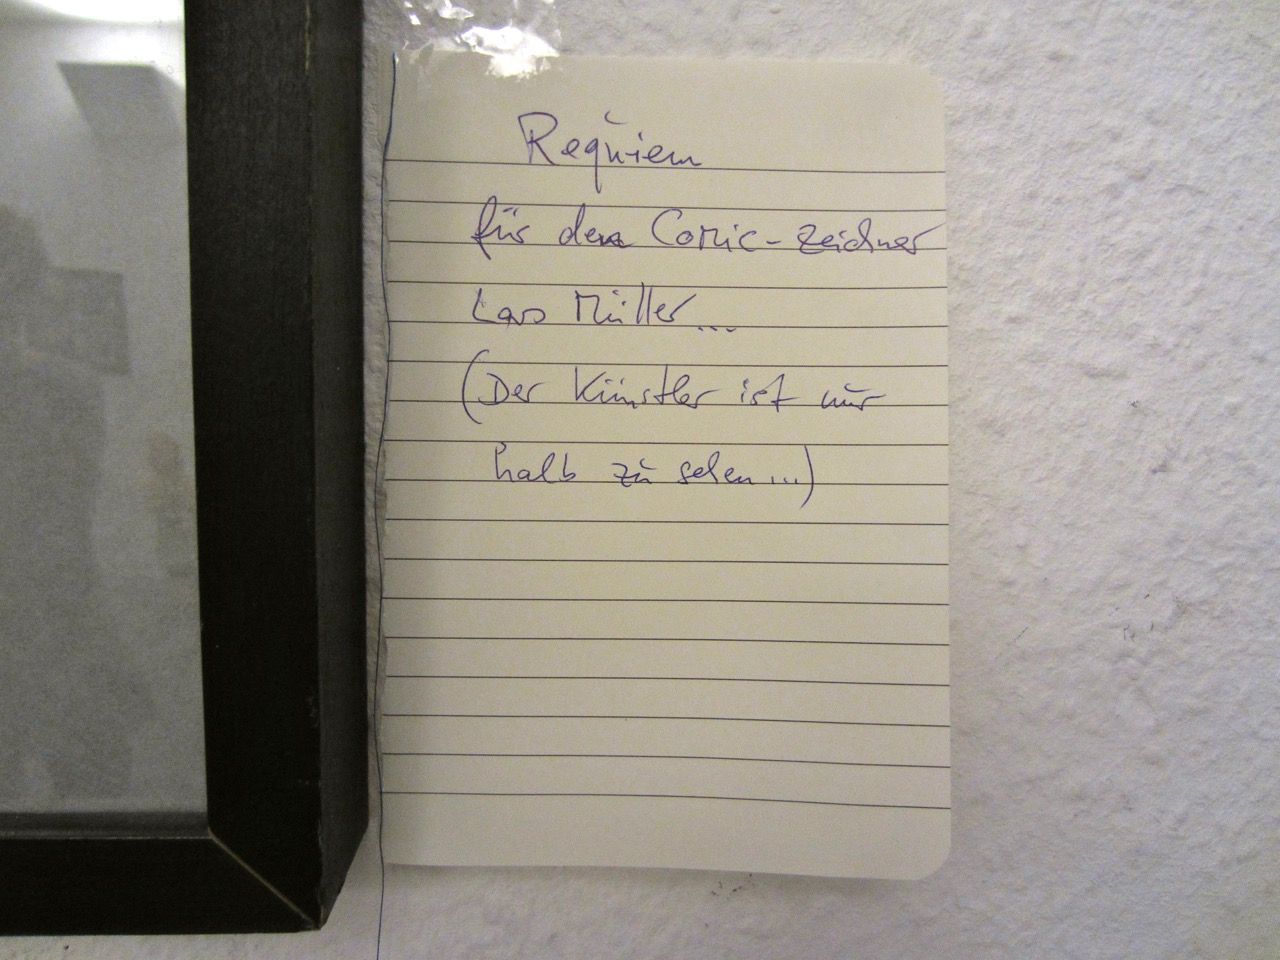 Requiem
für den Comic-Zeichner
Lars Müller...
(Der Künstler ist nur
halb zu sehen...)